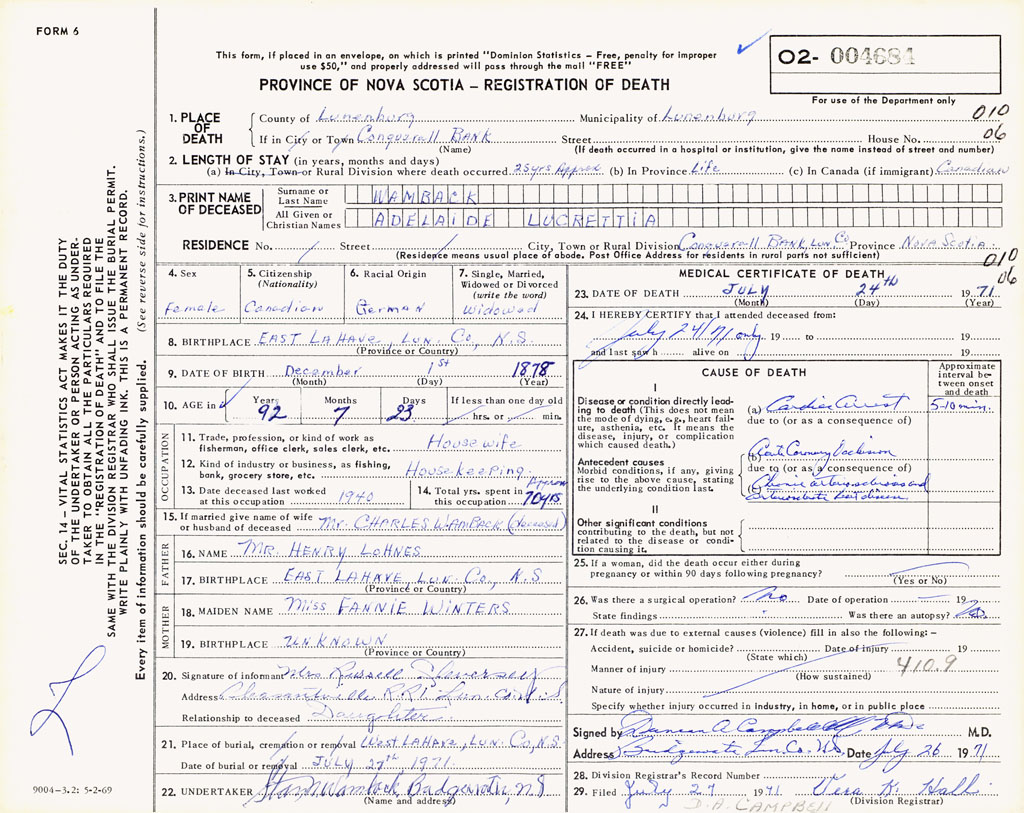 FORM 6
This form, if placed in an envelope, on which is printed "Dominion Statistics - Free, penalty for improper
use $50," and properly addressed will pass through the mail "FREE"
O2- 004684
PROVINCE OF NOVA SCOTIA - REGISTRATION OF DEATH
For use of the Department only
1. PLACE OF DEATH County of Lunenburg Municipality of Lunenburg 010
If in City or Town Conquerall BANK Street House No. 06
(Name) (If death occurred in a hospital or institution, give the name instead of street and number)
2. LENGTH OF STAY (in years, months and days)
(a) In City, Town or Rural Division where death occurred 25yrs Approx (b) In Province Life (c) In Canada (if immigrant) Canadian
3. PRINT NAME OF DECEASED Surname or Last Name WAMBACK
All Given or Christian Names ADELAIDE LUCRETTIA
RESIDENCE No. Street City, Town or Rural Division Conquerall BANK, Lun Co Province Nova Scotia
(Residence means usual place of abode. Post Office Address for residents in rural parts not sufficient) 010
06
4. Sex 5. Citizenship (Nationality) 6. Racial Origin 7. Single, Married, Widowed or Divorced (write the word)
Female Canadian German Widowed
8. BIRTHPLACE EAST LAHAVE, LUN. CO, N.S
(Province or Country)
9. DATE OF BIRTH December 1st 1878
(Month) (Day) (Year)
10. AGE in Years Months Days If less than one day old
92 7 23 hrs. or min.
OCCUPATION
11. Trade, profession, or kind of work as fisherman, office clerk, sales clerk, etc. House wife
12. Kind of industry or business, as fishing, bank, grocery store, etc. House keeping
13. Date deceased last worked at this occupation 1940
14. Total yrs. spent in this occupation Approx 70yrs
15. If married give name of wife or husband of deceased Mr. CHARLES WAMBACK (deceased)
FATHER
16. NAME MR. HENRY LOHNES
17. BIRTHPLACE EAST LAHAVE, LUN. CO., N.S
(Province or Country)
MOTHER
18. MAIDEN NAME Miss FANNIE WINTERS
19. BIRTHPLACE UNKNOWN
(Province or Country)
20. Signature of informant Mrs Russell
Address Pleasantville R.R.1 Lun.
Relationship to deceased Daughter
21. Place of burial, cremation or removal West LAHAVE, LUN. CO, N.S
Date of burial or removal JULY 27th 1971
22. UNDERTAKER
(Name and address)
MEDICAL CERTIFICATE OF DEATH
23. DATE OF DEATH JULY 24th 1971
(Month) (Day) (Year)
24. I HEREBY CERTIFY that I attended deceased from:
July 24/71 only 19 to 19
and last saw h alive on 19
CAUSE OF DEATH
Approximate interval between onset and death
I
Disease or condition directly leading to death (This does not mean the mode of dying, e.g., heart failure, asthenia, etc. It means the disease, injury, or complication which caused death.)
(a) Cardiac arrest 5-10 min.
due to (or as a consequence of)
Antecedent causes
Morbid conditions, if any, giving rise to the above cause, stating the underlying condition last.
(b) Acute Coronary Occlusion
due to (or as a consequence of)
(c) Chronic arteriosclerosis and
heart disease
II
Other significant conditions
contributing to the death, but not related to the disease or condition causing it.
25. If a woman, did the death occur either during pregnancy or within 90 days following pregnancy?
(Yes or No)
26. Was there a surgical operation? No Date of operation 19
State findings Was there an autopsy? No
27. If death was due to external causes (violence) fill in also the following: -
Accident, suicide or homicide? Date of injury 19
(State which)
Manner of injury 410.9
(How sustained)
Nature of injury
Specify whether injury occurred in industry, in home, or in public place
Signed by Duncan A Campbell M.D.
Address Bridgewater Lun. Co. N.S. Date July 26 1971
28. Division Registrar's Record Number
29. Filed July 27 1971 Vera K. Hall
(Division Registrar)
D.A. CAMPBELL
SEC. 14 - VITAL STATISTICS ACT MAKES IT THE DUTY
OF THE UNDERTAKER OR PERSON ACTING AS UNDER-
TAKER TO OBTAIN ALL THE PARTICULARS REQUIRED
IN THE "REGISTRATION OF DEATH" AND TO FILE THE
SAME WITH THE DIVISION REGISTRAR WHO SHALL ISSUE THE BURIAL PERMIT.
WRITE PLAINLY WITH UNFADING INK. THIS IS A PERMANENT RECORD.
Every item of information should be carefully supplied. (See reverse side for instructions.)
9004-3.2: 5-2-69